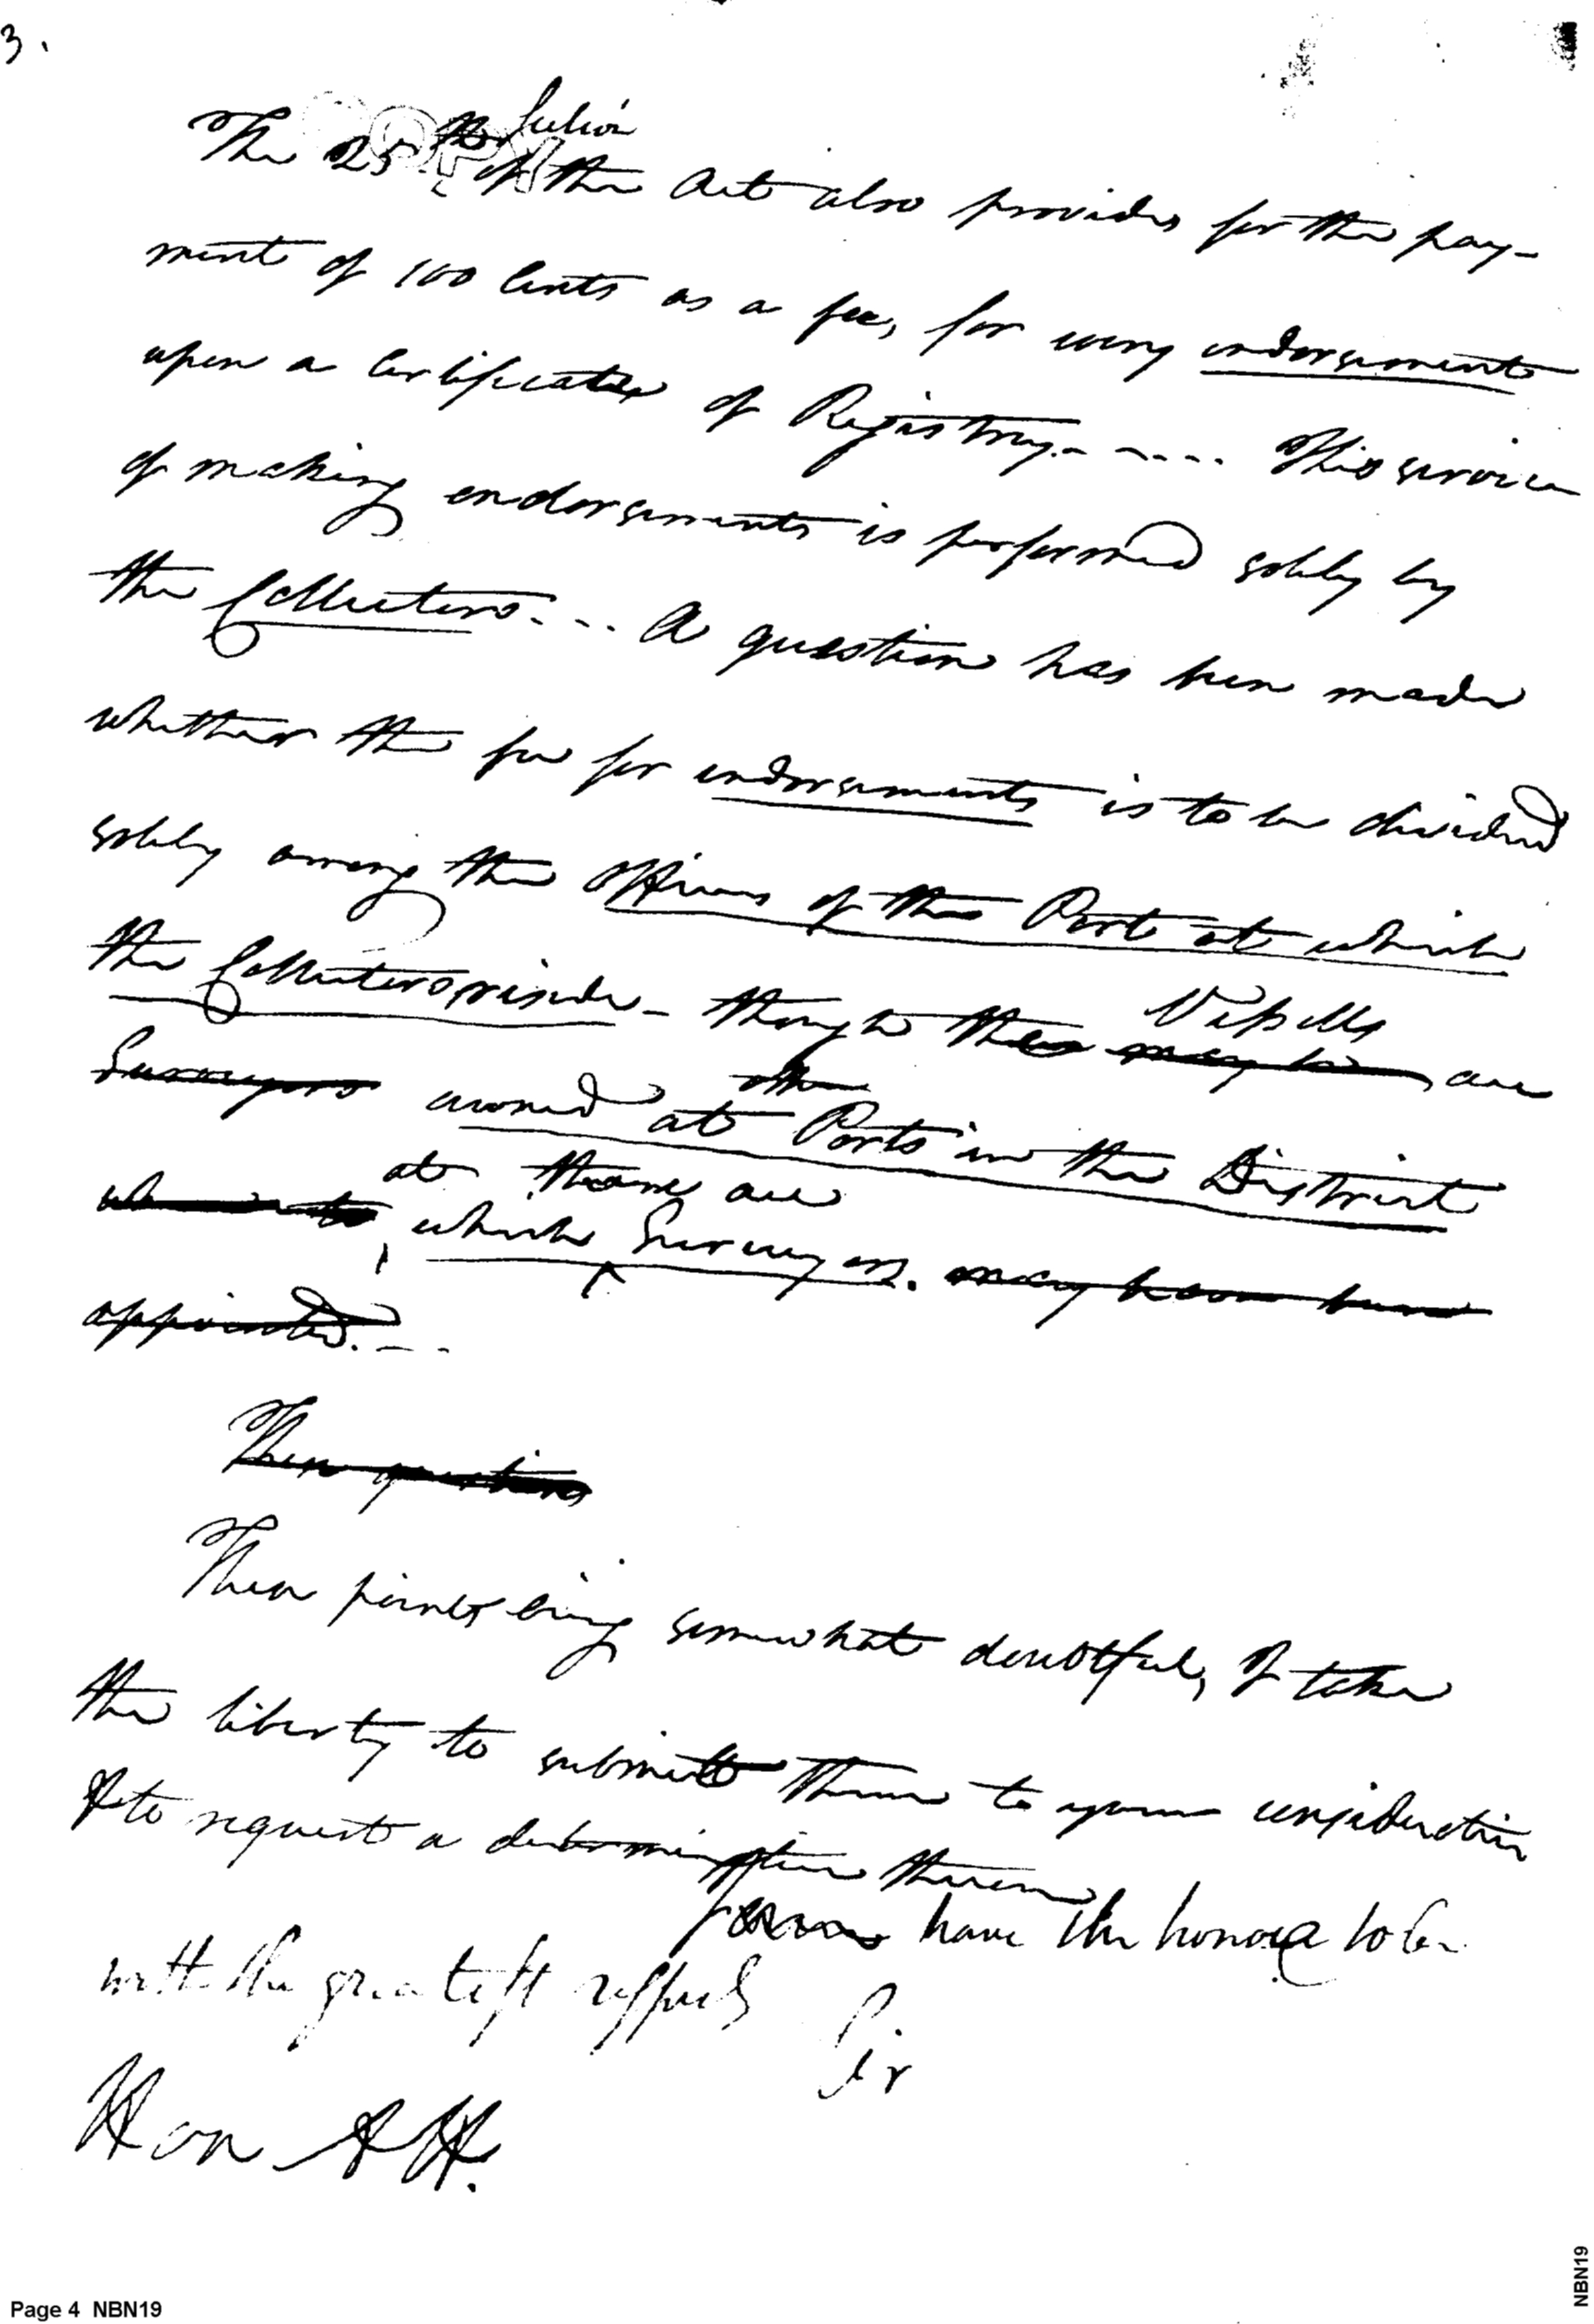 3.
Section
The 25th of the Act also provides for the pay-
ment of 100 Cents as a fee, for every endorsement
upon a Certificate of Registry. - - - - - This service
of making endorsements is performed solely by
the Collectors. - - - A question has been made
whether the fee for endorsements is to be divided
solely among the Officers of the Port at which
the Collectors reside - though the Vessells may be are
Surveyors owned at Ports in the District
at there are
which Surveyors. may have been
appointed. - -
These questions
These points being somewhat doubtful, I take
the liberty to submit them to your consideration
& to request a determination thereon
have the honor to be
with the greatest respect
Sir
Hon A H.
Page 4 NBN19
NBN19